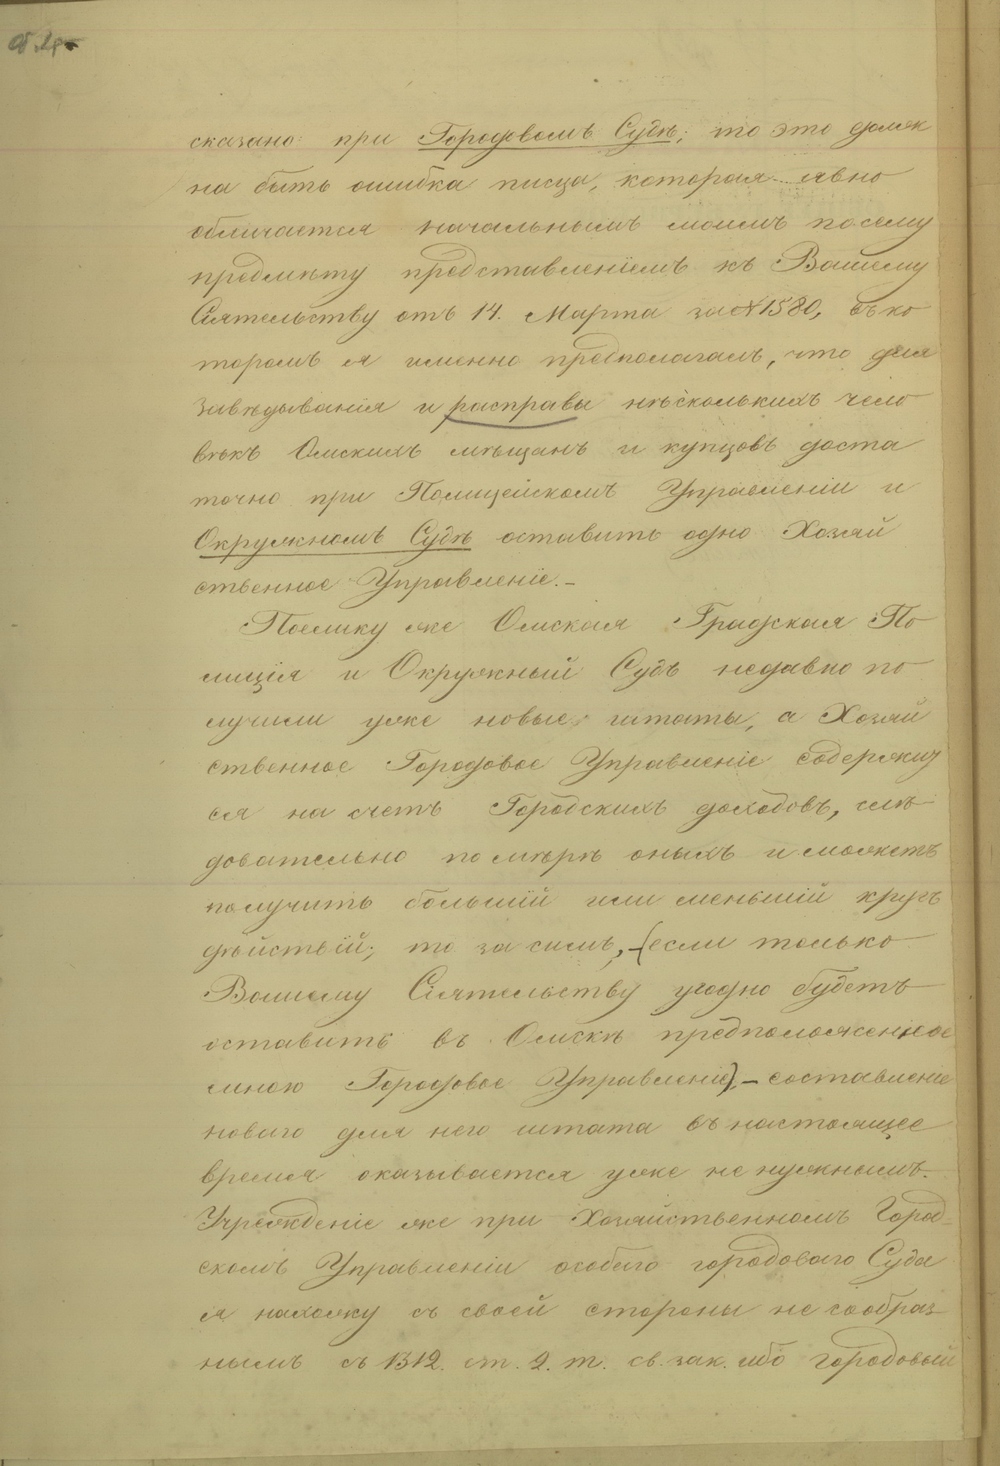 сказано: при Городовомъ Судѣ; то это долж
на быть ошибка писца, которая явно
обличается начальнымъ моимъ посему
предмѣту представленіемъ къ Вашему
Сіятельству отъ 14. Марта за № 1580, въ ко
торомъ я именно предполагалъ, что для
завѣдыванія и расправы нѣсколькихъ чело
вѣкъ Омскихъ мѣщанъ и купцовъ доста
точно при Полицейскомъ Управленіи и
Окружномъ Судѣ оставить одно Хозяй
ственное Управленіе.-
Поелику же Омская Градская По
лиція и Окружный Судъ недавно по
лучили уже новые штаты, а Хозяй
ственное Городовое Управленіе содержит
ся на счетъ Городскихъ доходовъ, слѣ
довательно по мѣрѣ оныхъ и можетъ
получить большій или меньшій кругъ
дѣйствій; то за симъ, -(если только
Вашему Сіятельству угодно будетъ
оставить въ Омскѣ предположенное
мною Городовое Управленіе),- составленіе
новаго для него штата въ настоящее
время оказывается уже не нужнымъ.
Учрежденіе же при Хозяйственномъ Город
скомъ Управленіи особаго городоваго Суда
я нахожу съ своей стороны не сообраз
нымъ съ 1312. ст. 2. т. св. зак. ибо городовый